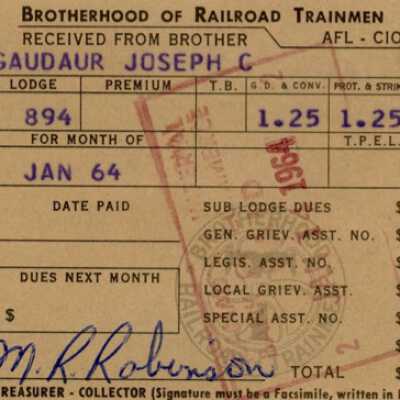 BROTHERHOOD OF RAILROAD TRAINMEN
RECEIVED FROM BROTHER AFL - CIO
GAUDAUR JOSEPH C
LODGE PREMIUM T.B. G.D. & CONV. PROT. & STRIK
894 1.25 1.25
FOR MONTH OF T.P.E.L.
JAN 64
1964
DATE PAID SUB LODGE DUES $
GEN. GRIEV. ASST. NO. $
LEGIS. ASST. NO. $
DUES NEXT MONTH LOCAL GRIEV. ASST. $
$ SPECIAL ASST. NO. $
BROTHERHOOD RAILROAD TRAINMEN
M. R. Robinson TOTAL $
TREASURER - COLLECTOR (Signature must be a Facsimile, written in